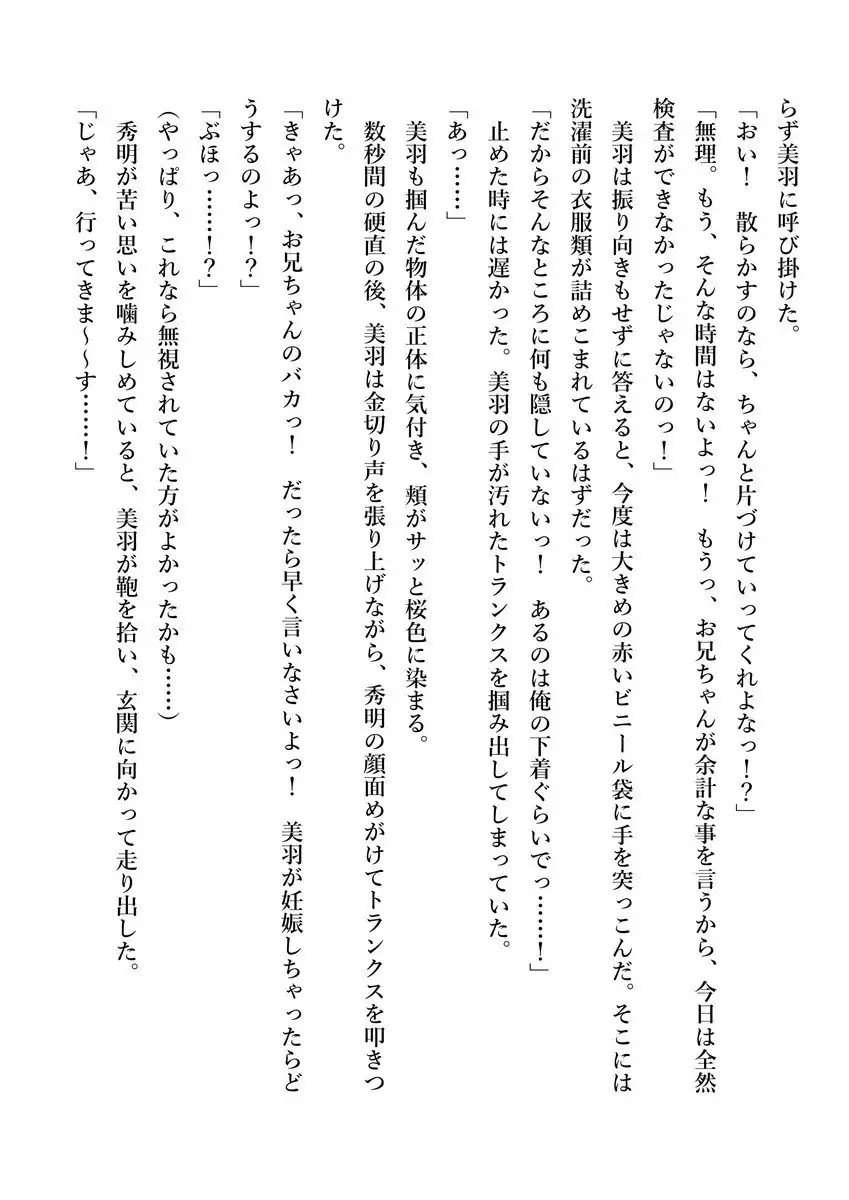 らず美羽に呼び掛けた。
「おい！　散らかすのなら、ちゃんと片づけていってくれよなっ！？」
「無理。もう、そんな時間はないよっ！　もうっ、お兄ちゃんが余計な事を言うから、今日は全然
検査ができなかったじゃないのっ！」
　美羽は振り向きもせずに答えると、今度は大きめの赤いビニール袋に手を突っこんだ。そこには
洗濯前の衣服類が詰めこまれているはずだった。
「だからそんなところに何も隠していないっ！　あるのは俺の下着ぐらいでっ……！」
　止めた時には遅かった。美羽の手が汚れたトランクスを掴み出してしまっていた。
「あっ……」
　美羽も掴んだ物体の正体に気付き、頬がサッと桜色に染まる。
　数秒間の硬直の後、美羽は金切り声を張り上げながら、秀明の顔面めがけてトランクスを叩きつ
けた。
「きゃあっ、お兄ちゃんのバカっ！　だったら早く言いなさいよっ！　美羽が妊娠しちゃったらど
うするのよっ！？」
「ぶほっ……！？」
（やっぱり、これなら無視されていた方がよかったかも……）
　秀明が苦い思いを噛みしめていると、美羽が鞄を拾い、玄関に向かって走り出した。
「じゃあ、行ってきま～～す……！」